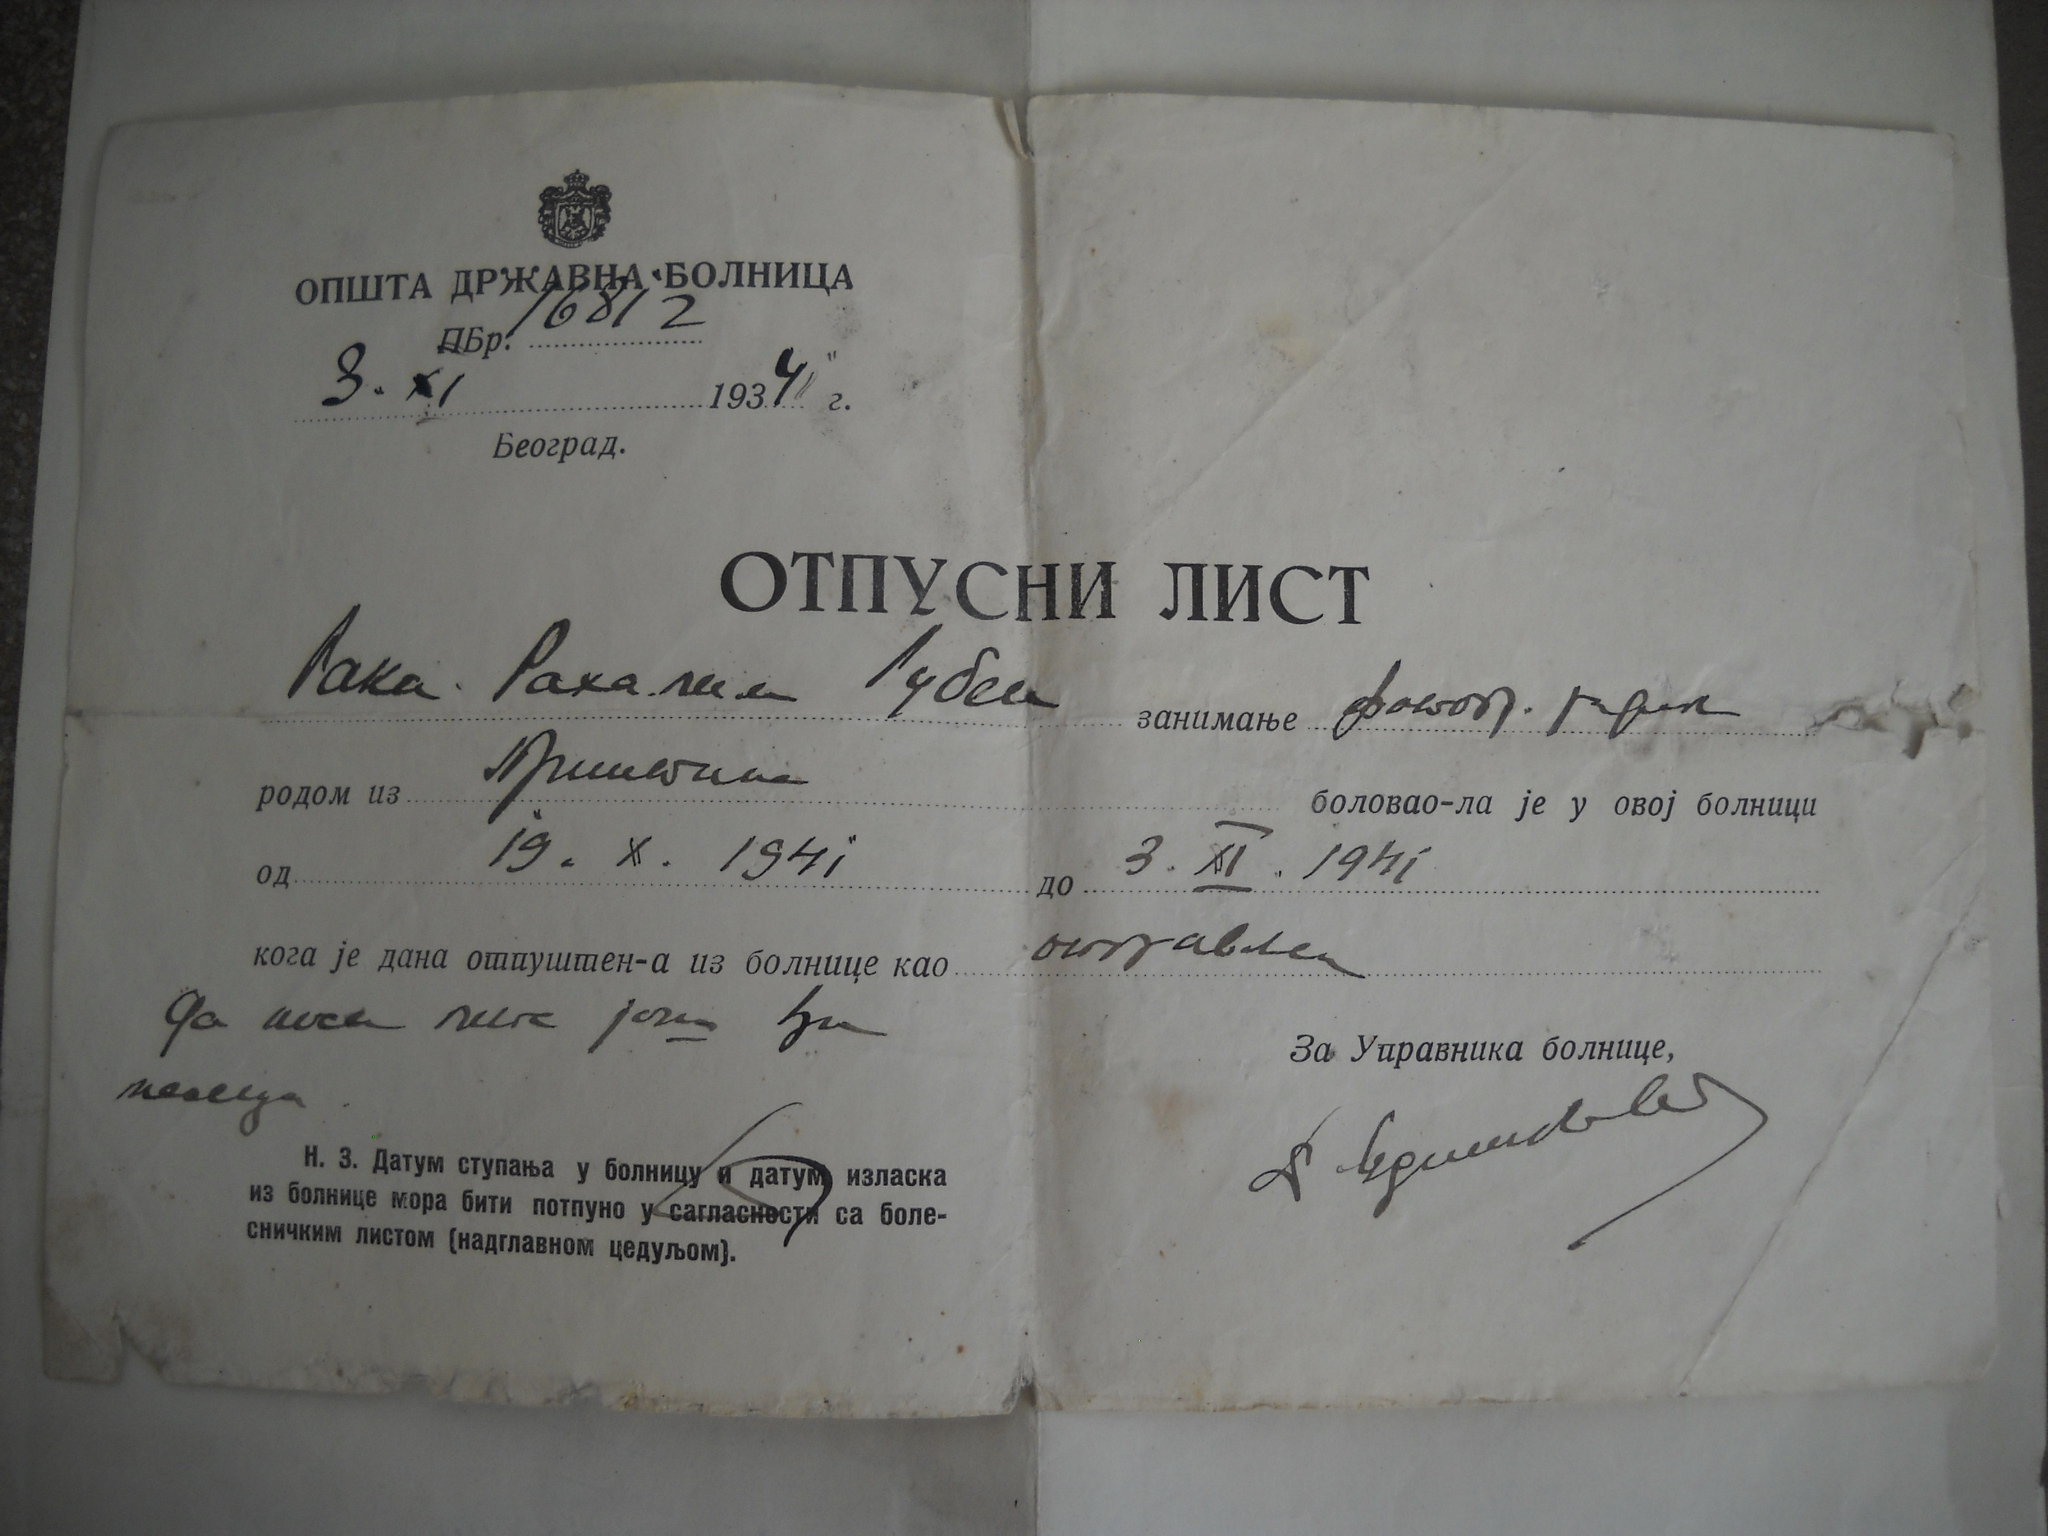 ОПШТА ДРЖАВНА БОЛНИЦА
ПБр. 16812
3. XI 1934 1 г.
Београд.
ОТПУСНИ ЛИСТ
Рубен занимање
родом из Приштине боловао-ла је у овој болници
од 19. X. 1941 до 3. XI. 1941
кога је дана отпуштен-а из болнице као опорављен
Да носи гипс још
месеца.
За Управника болнице,
Н. З. Датум ступања у болницу и датум изласка
из болнице мора бити потпуно у сагласности са боле-
сничким листом (надглавном цедуљом).